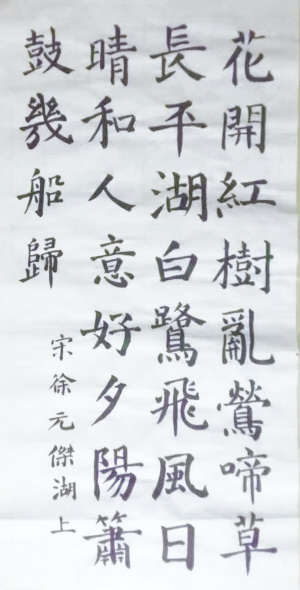 花開紅樹亂鶯啼草
長平湖白鷺飛風日
晴和人意好夕陽簫
鼓幾船歸
宋徐元傑湖上